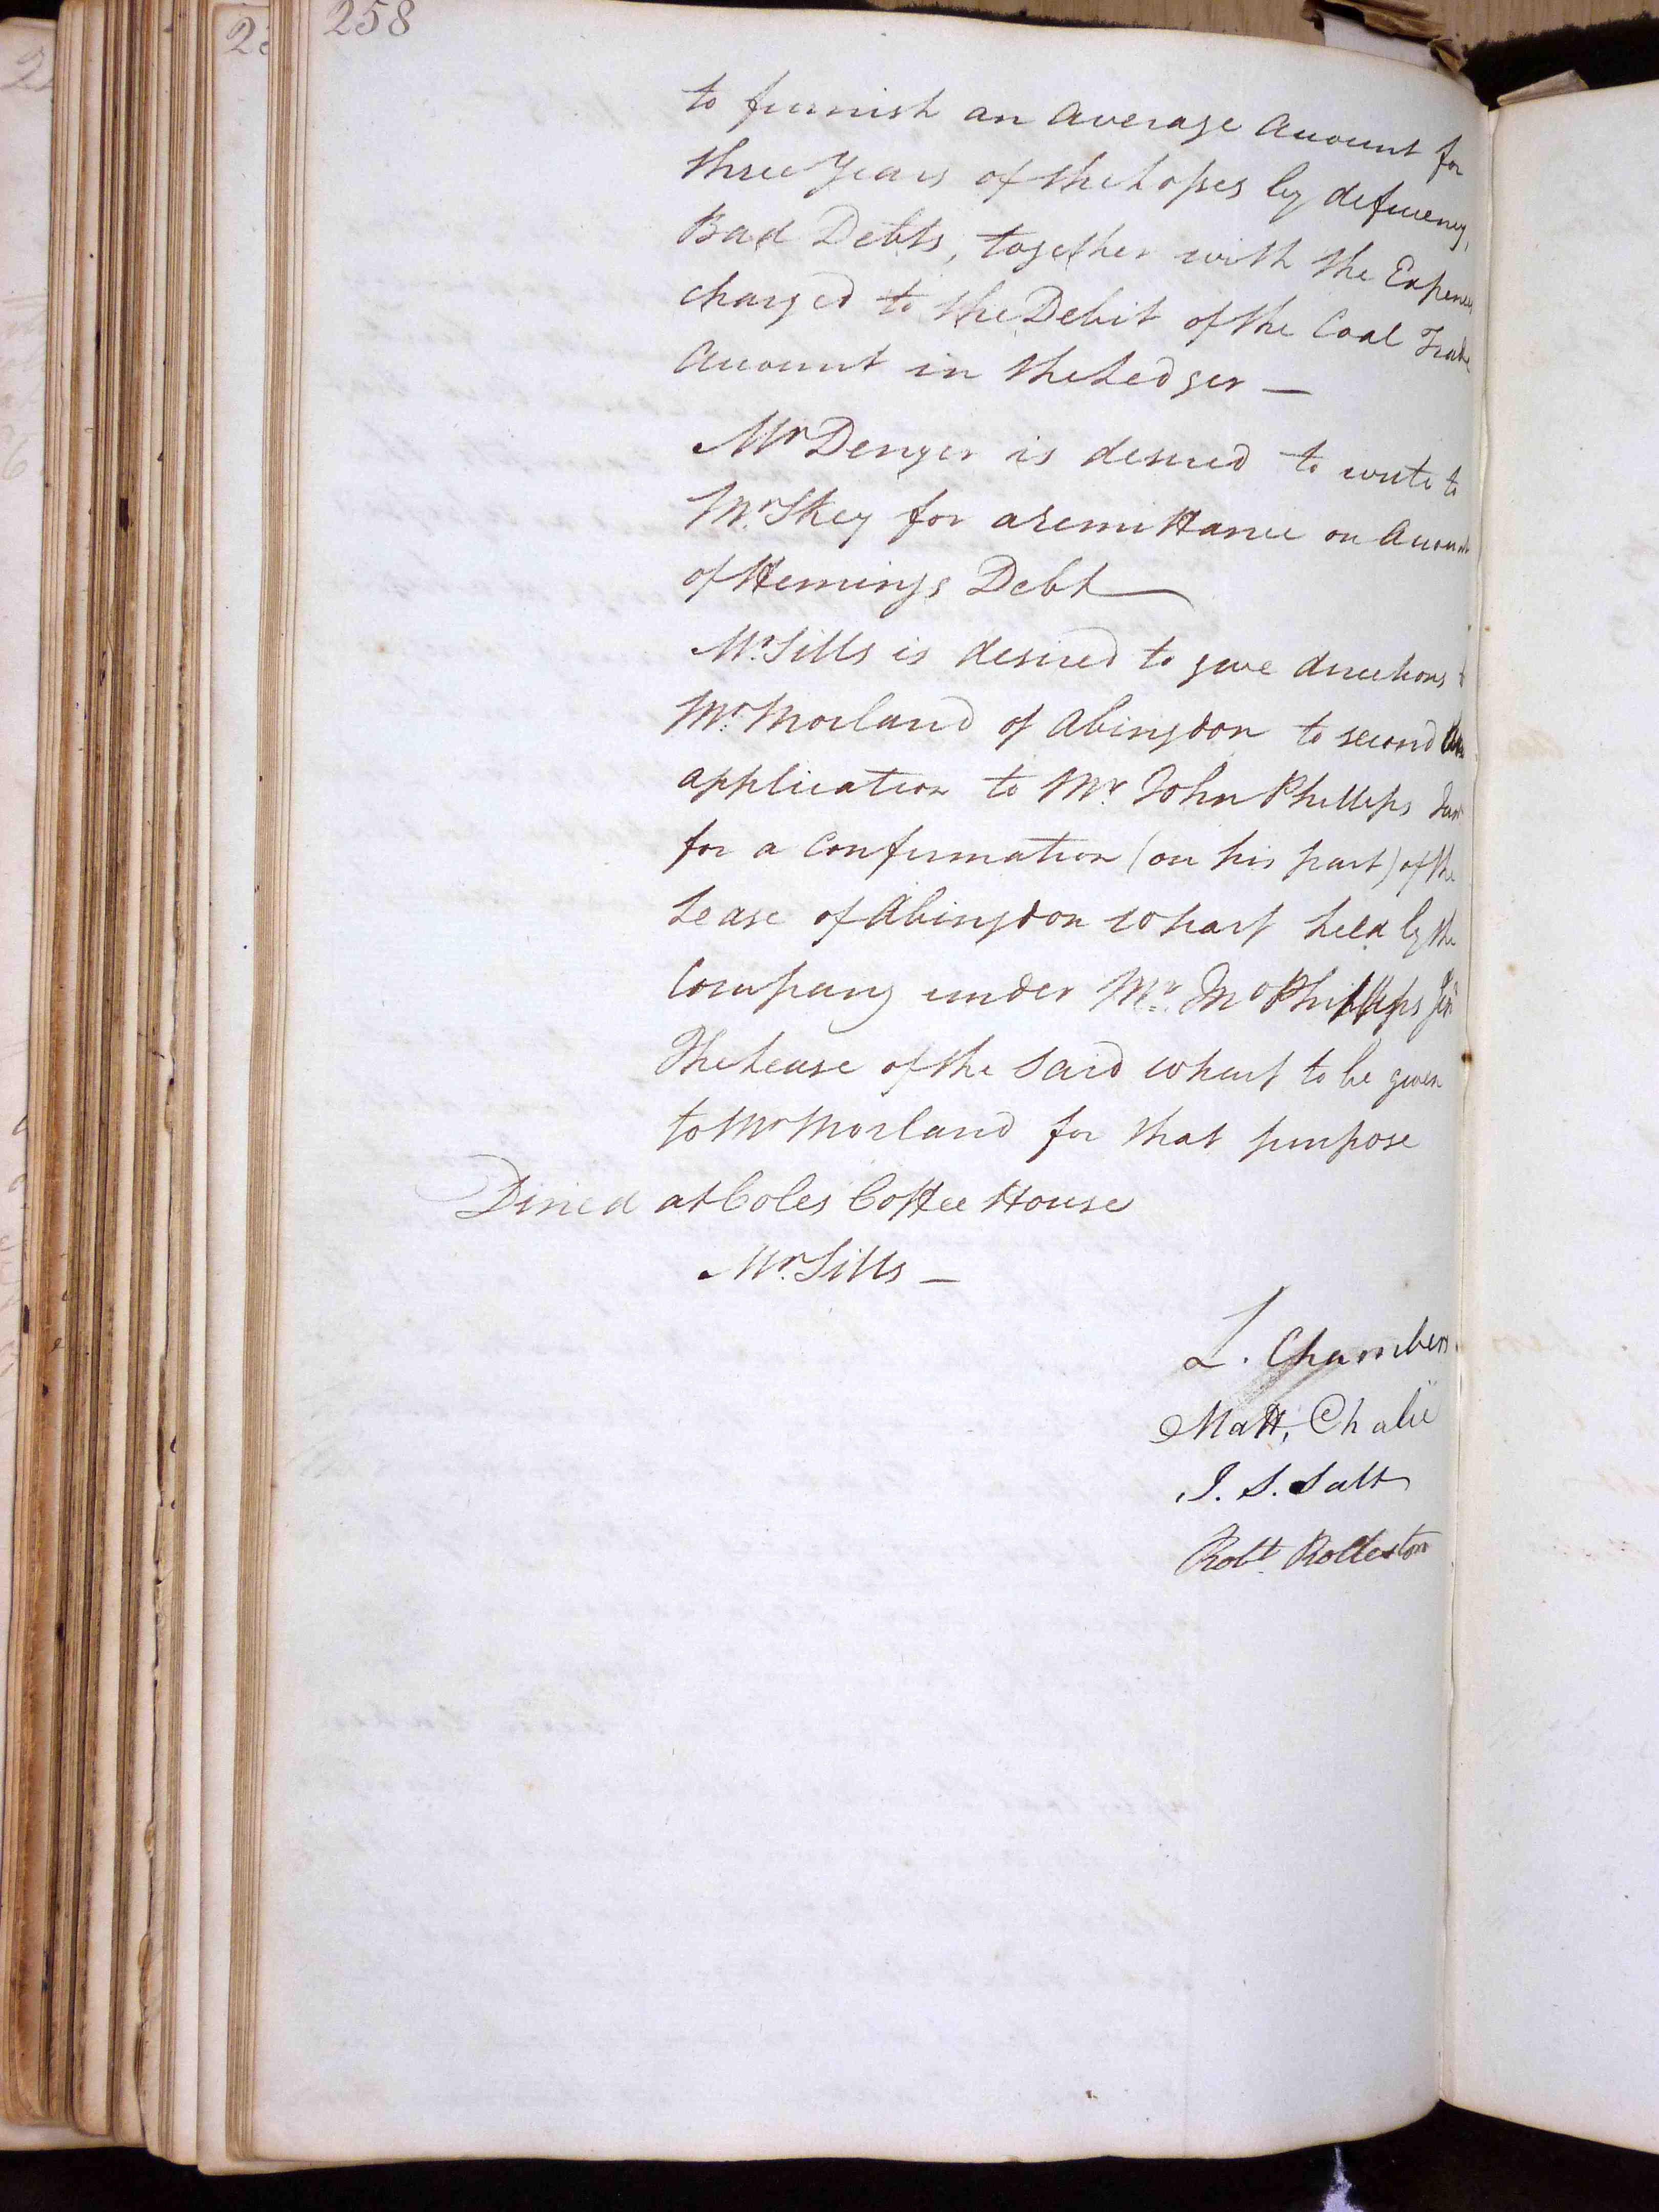 258
to furnish an average Account for
three Years of the Losses by deficiency,
Bad Debts, together with the Expences
charged to the Debit of the Coal Trade
Account in the Ledger —
Mr Denyer is desired to write to
Mr. Skey for a remittance on Account
of Hemings Debt
Mr. Sills is desired to give directions to
Mr. Morland of Abingdon to second
application to Mr. John Phillips Junr
for a Confirmation (on his part) of the
Lease of Abingdon Wharf held by the
Company under Mr. Jno Phillips Senr
The Lease of the said Wharf to be given
to Mr Morland for that purpose
Dined at Coles Coffee House
Mr. Sills —
L. Chambers.
Matt, Chalié
J. S. Salt
Robt. Rolleston